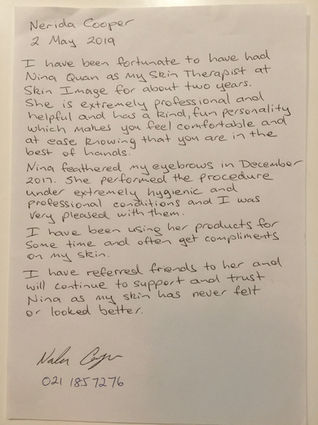 Nerida Cooper
2 May 2019
I have been fortunate to have had
Nina Quan as my Skin Therapist at
Skin Image for about two years.
She is extremely professional and
helpful and has a kind, fun personality
which makes you feel comfortable and
at ease knowing that you are in the
best of hands.
Nina feathered my eyebrows in December
2017. She performed the procedure
under extremely hygienic and
professional conditions and I was
very pleased with them.
I have been using her products for
some time and often get compliments
on my skin.
I have referred friends to her and
will continue to support and trust
Nina as my skin has never felt
or looked better.
021 1857276